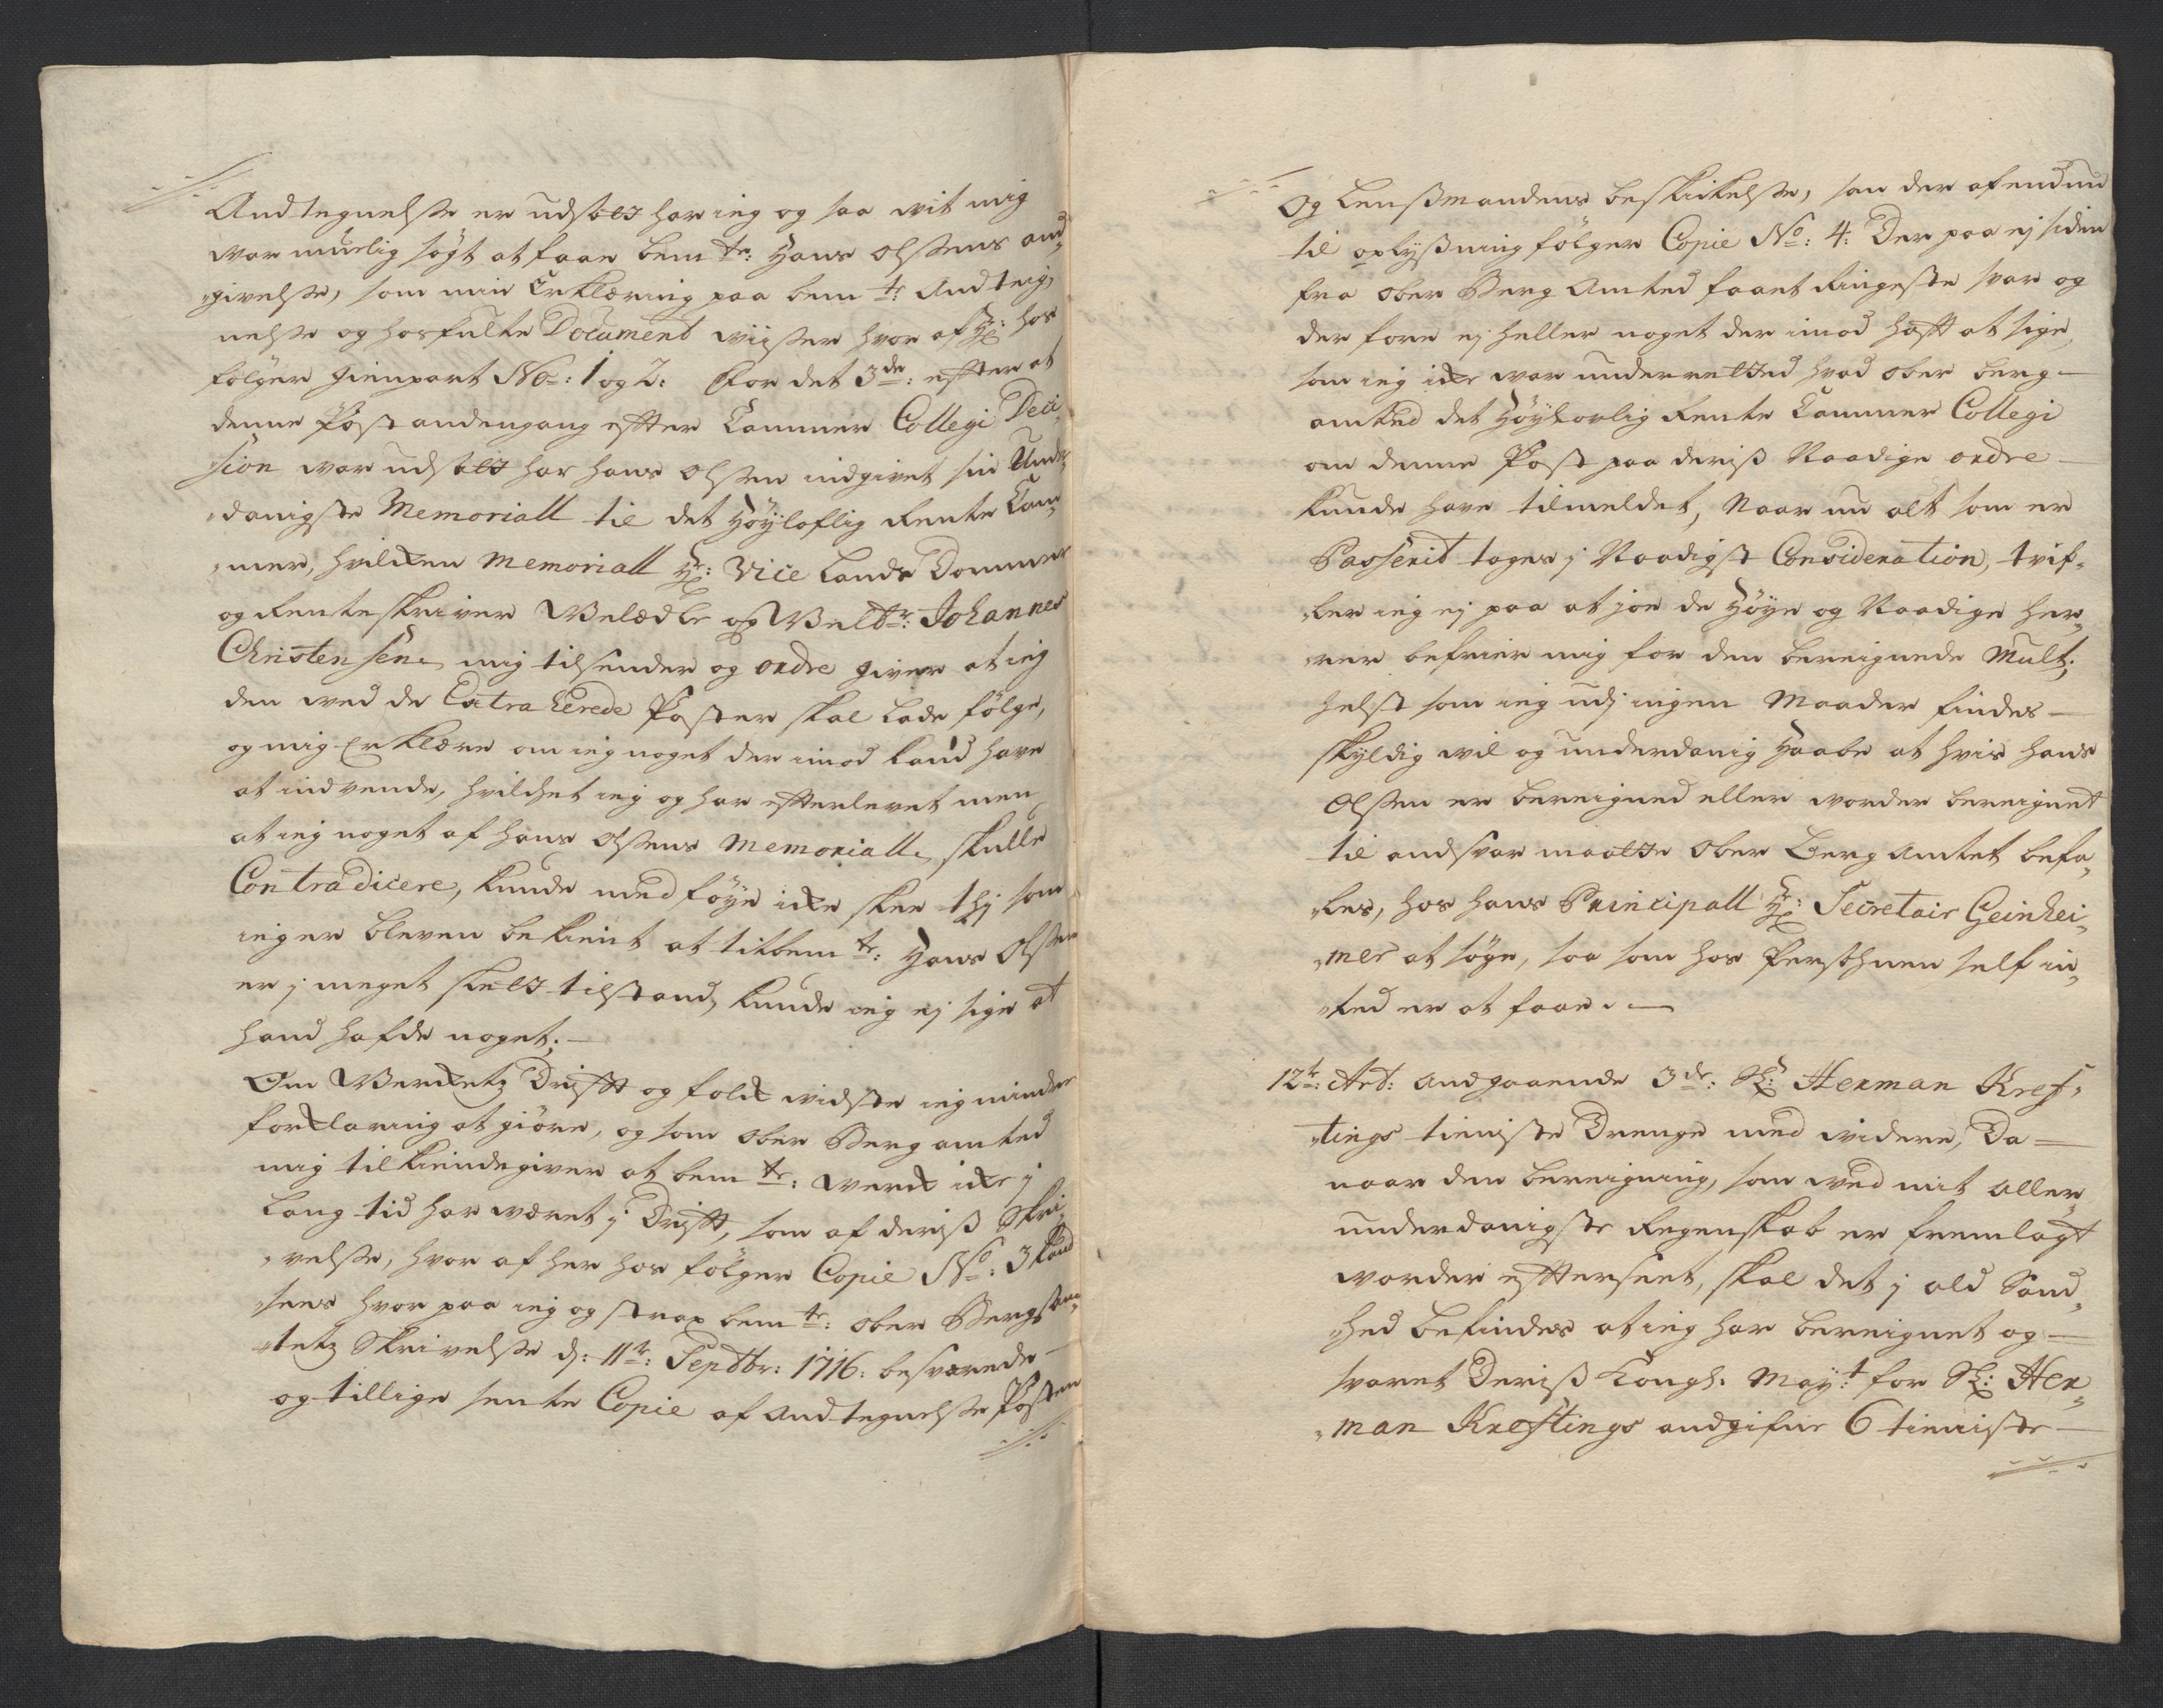 Andtegnelsse er udsatt har ieg og saa vit mig
war muelig søgt at faae bemte: Hans Olssens and¬
givelsse, som min Erklæring paa bemte: Andteig¬
nelsse og hosfulte Document viisser hvor af Hr: hos
følger gienpart No: 1 og 2: For det 3de: effter at
denne Post anden gang effter Cammer Collegi Deci¬
sion war udsatt har Hans Olssen indgivet sin Under¬
danigste Memoriall til det Høyloflig Rente Cam¬
mer, hvilcken Memoriall Hr: Vice Lands Dommer
og Renteskriver WelEdle og Welbr: Johannes
Christensen mig tilsender og ordre giver at ieg
den ved de Extraherede Poster skal lade følge,
og mig Erklære om ieg noget der imod kand have
at indvende, hvilchet ieg og har effterlevet men
at ieg noget af Hans Olssens Memoriall skulle
Contradicere, kunde med føye icke skee thj som
ieg er bleven bekient at titbemte: Hans Olssen
er j meget slett tilstand, kunde ieg ej sige at
hand hafde noget;
Om Werckets Drifft og folck vidste ieg mindre
forklaring at giøre, og som Ober Berg amted
mig tilkiendegiver at bemte: werck icke j
lang tid har wæret j Drifft, som af deris Skri¬
velsse, hvor af her hos følger Copie No: 3 kand
sees hvor paa ieg og strax bemte: Ober Bergs Am¬
tets Skrivelsse d: 11te: Septbr: 1716: besvarede
og tillige sente Copie af Andtegnelsse Posten
Og Lensmandens beskickelsse, som der af endnu
til oplysning følger Copie No: 4: Der paa ej siden
fra Ober Berg Amted faaet ringeste svar og
der fore ej heller noget der imod hafft at sige,
som ieg icke war underretted hvad Ober berg
amted det Høylovlig Rente Cammer Collegi
om denne Post paa deris Naadige ordre
kunde have tilmeldet, Naar nu alt som er
Passerit tages j Naadigst Consideration, tvif¬
ler ieg ej paa at joe de Høye og Naadige Her¬
rer befrier mig for den bereignede Mult;
helst som ieg udj ingen Maader findes
skyldig vil og underdanig Haabe at hvis Hans
Olssen er bereigned eller worder bereignet
til andsvar maatte Ober Berg Amtet befa¬
les, hos hans Principall Hr: Secretair Geinhei¬
mer at søge, saa som hos Persohnen self in¬
ted er at faae.
12te: Art: andgaaende 3de: Sl: Herman Kref¬
tings tieniste Drenge med videre, Da
naar den bereigning, som ved mit aller
underdanigste Regenskab er fremlagt
worder effterseet, skal det j ald Sand¬
hed befindes at ieg har bereignet og
svaret Deris Kongl. May:t for Sl: Her¬
man Kreftings andgifne 6 tieniste